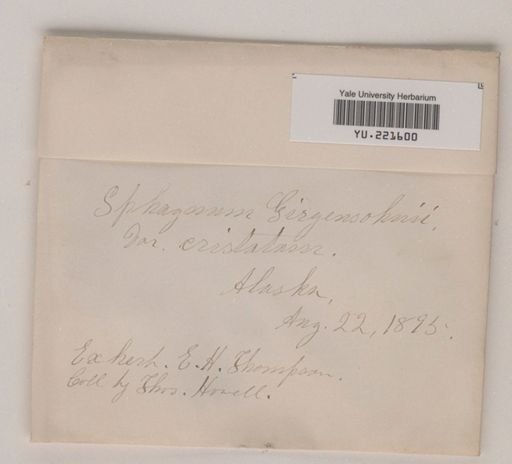 Yale University Herbarium
YU.221600
Sphagnum Girgensohnii,
Var. cristatum.
Alaska,
Aug. 22, 1895.
Ex herb. E. H. Thompson.
Coll by Thos. Howell.